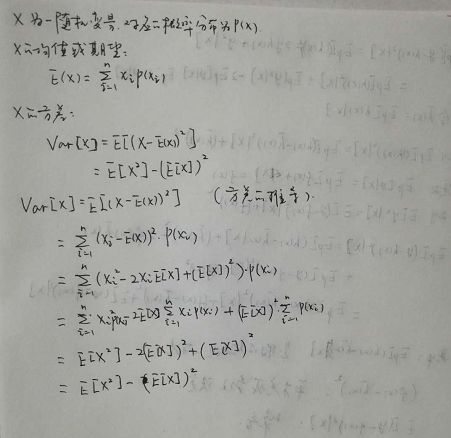 X 为一随机变量,对应二概率分布为p(x).
X的均值或期望:
E(x) = ∑_{i=1}^{n} x_i p(x_i)
X的方差:
Var[X] = E[(X-E(X))²]
= E[X²] - (E[X])²
Var[X] = E[(X-E(X))²] (方差的推导).
= ∑_{i=1}^{n} (x_i - E(X))² · p(x_i)
= ∑_{i=1}^{n} (x_i² - 2x_i E[X] + (E[X])²) · p(x_i)
= ∑_{i=1}^{n} x_i² p(x_i) - 2E[X] ∑_{i=1}^{n} x_i p(x_i) + (E[X])² · ∑_{i=1}^{n} p(x_i)
= E[X²] - 2(E[X])² + (E[X])²
= E[X²] - (E[X])²